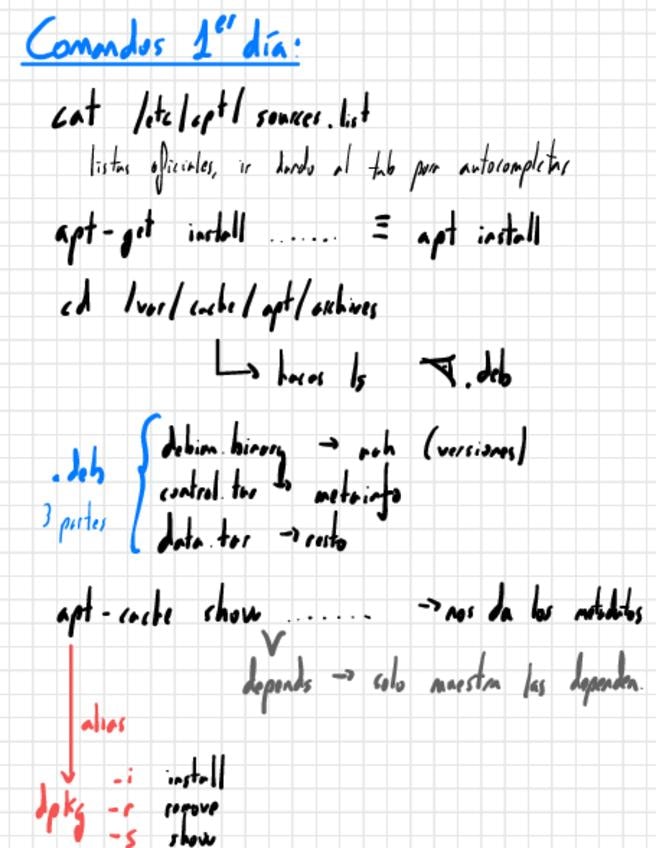 Comandos 1er día:
cat /etc/apt/sources.list
listas oficiales, ir dando al tab para autocompletar
apt-get install ....... ≡ apt install
cd /var/cache/apt/archives
↳ haces ls .deb
.deb
3 partes
debian.binary → nah (versiones)
control.tar → metainfo
data.tar → resto
apt-cache show ........ → nos da los metadatos
depends → solo muestra las dependen.
alias
dpkg
-i install
-r remove
-s show